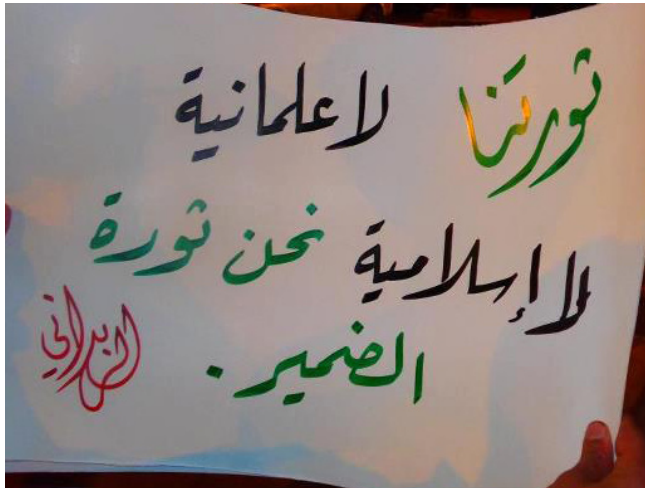 ثورتنا لا علمانية
لا إسلامية نحن ثورة
الضمير.
الزبداني